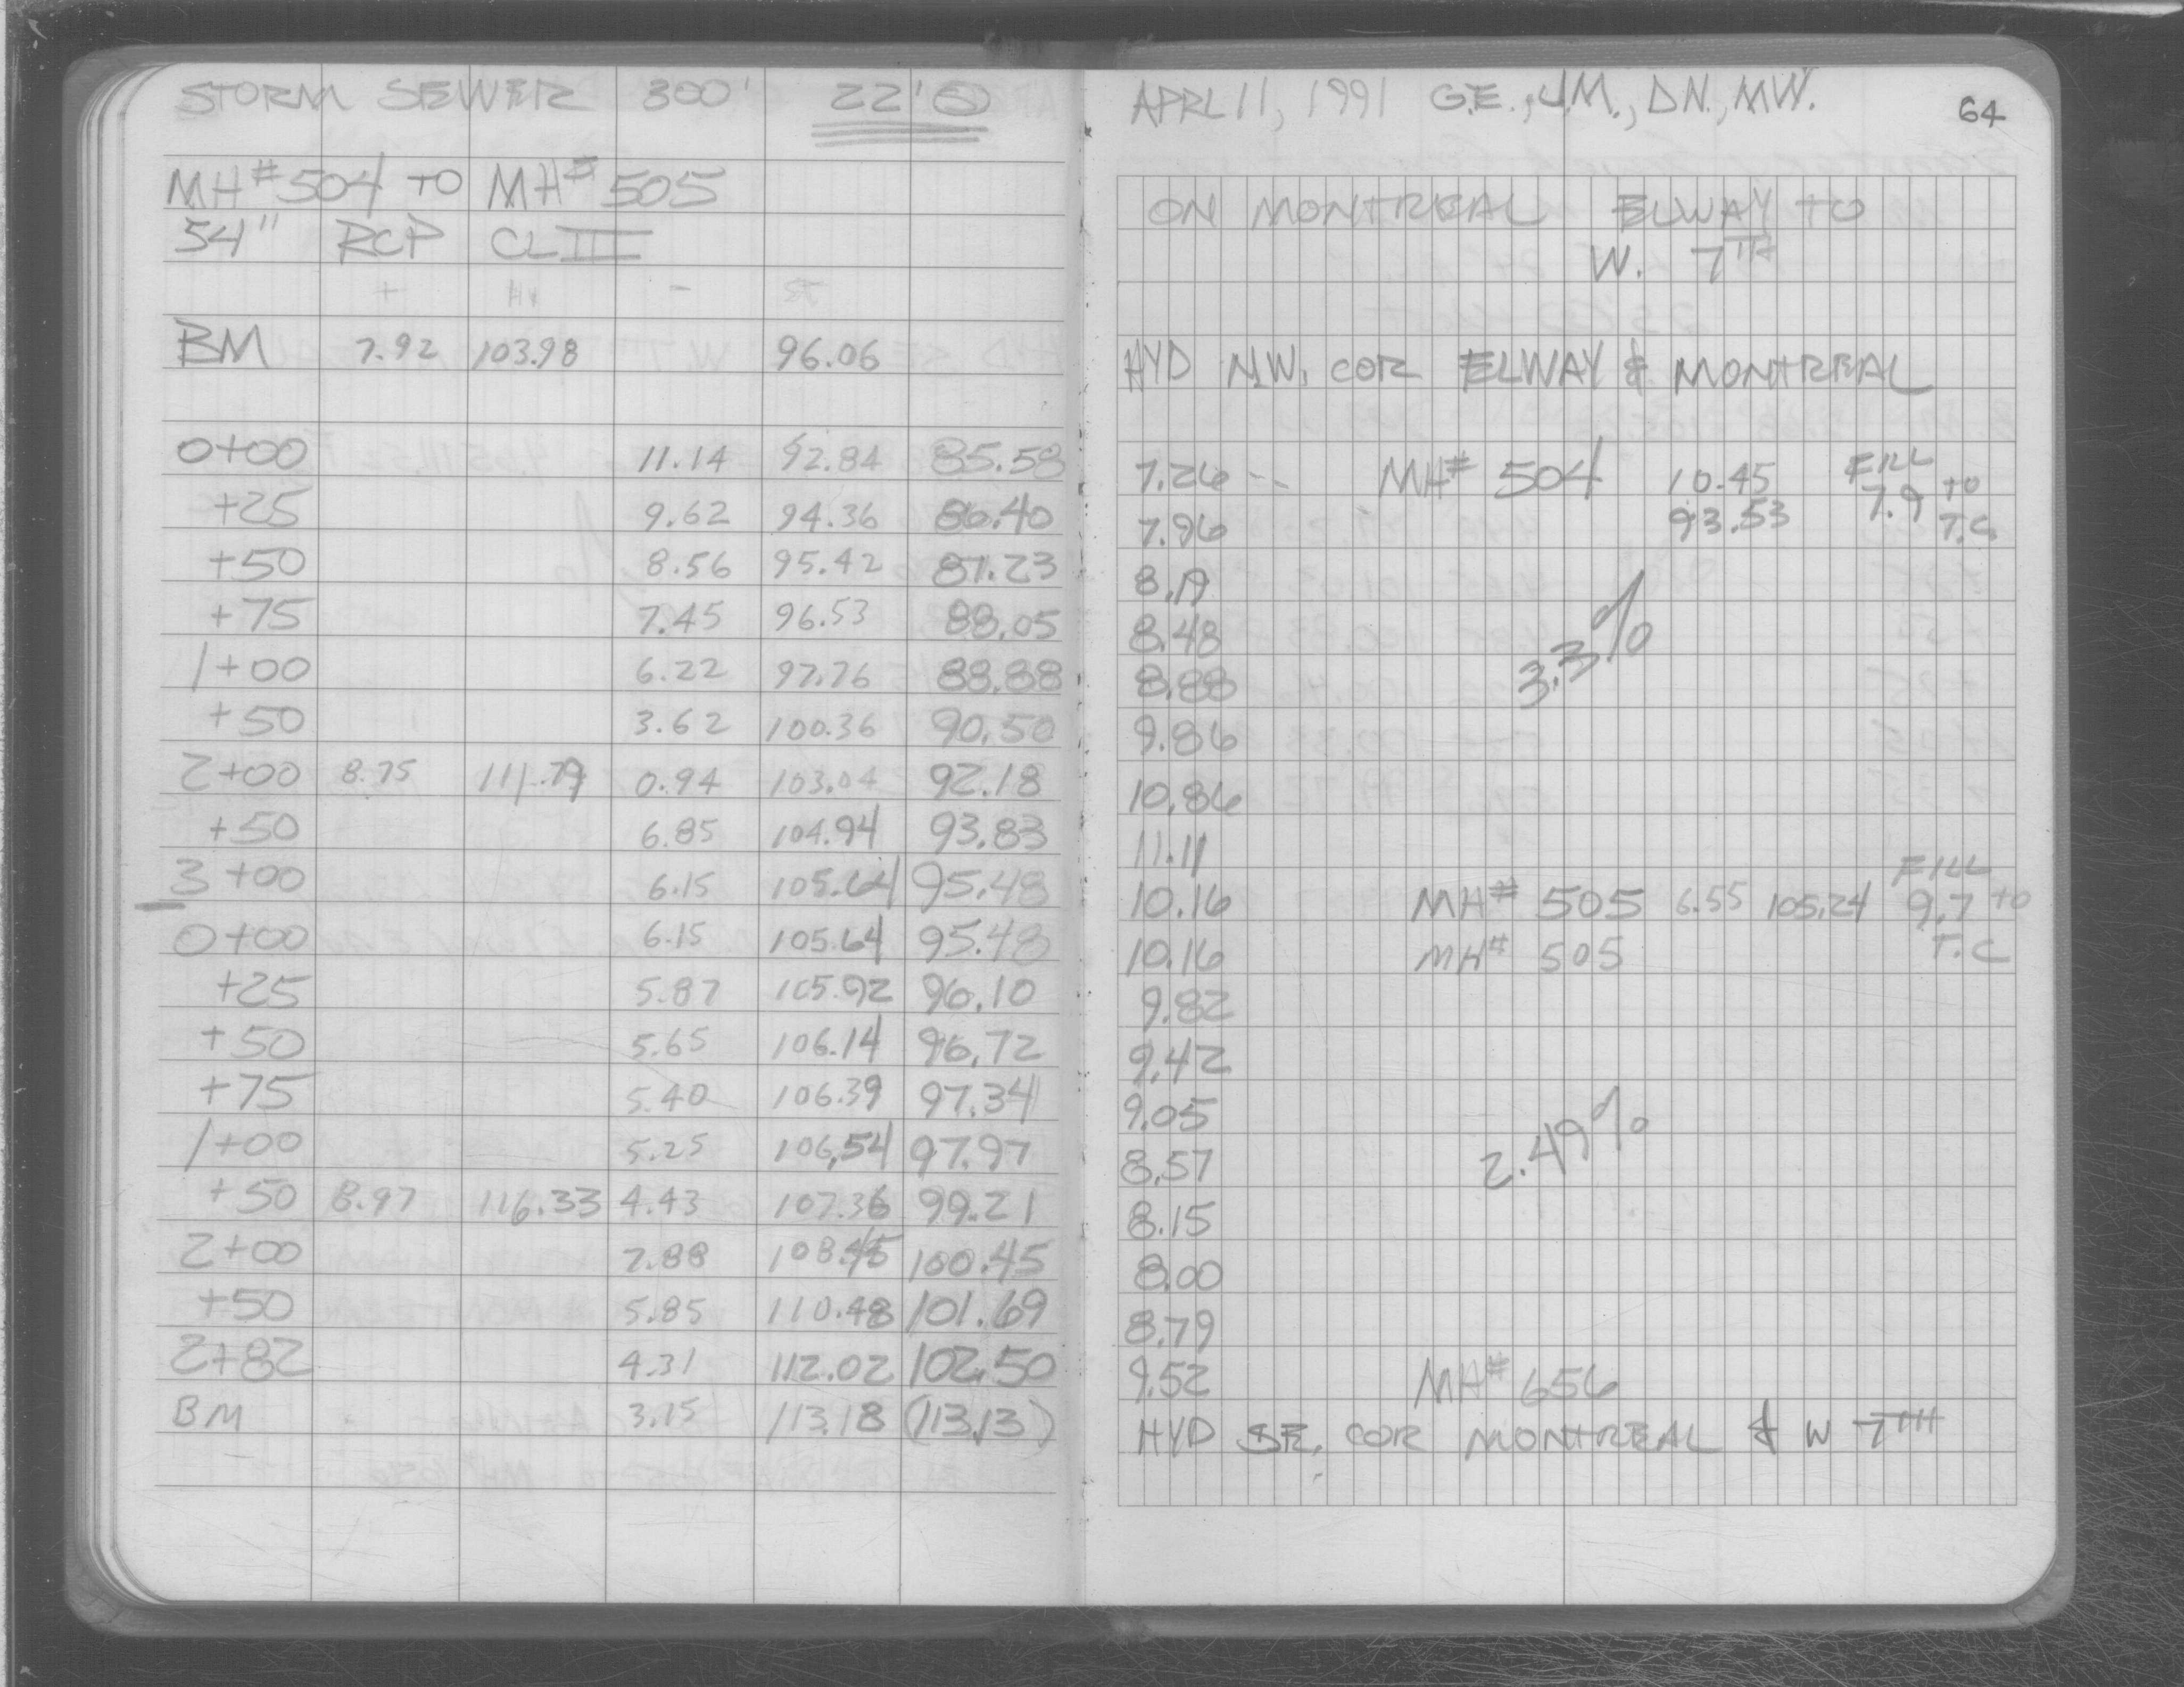 STORM SEWER 300' 22'
MH# 504 TO MH# 505
54" RCP CL III
+ HI -
BM 7.92 103.98 96.06
0+00 11.14 92.84 85.58
+25 9.62 94.36 86.40
+50 8.56 95.42 87.23
+75 7.45 96.53 88.05
1+00 6.22 97.76 88.88
+50 3.62 100.36 90.50
2+00 8.75 111.79 0.94 103.04 92.18
+50 6.85 104.94 93.83
3+00 6.15 105.64 95.48
0+00 6.15 105.64 95.48
+25 5.87 105.92 96.10
+50 5.65 106.14 96.72
+75 5.40 106.39 97.34
1+00 5.25 106.54 97.97
+50 8.97 116.33 4.43 107.36 99.21
2+00 7.88 108.45 100.45
+50 5.85 110.48 101.69
2+82 4.31 112.02 102.50
BM 3.15 113.18 (113.13)
APRL 11, 1991 G.E., J.M., D.N., M.W. 64
ON MONTREAL ELWAY TO
W. 7TH
HYD N.W. COR ELWAY & MONTREAL
7.26 -- MH# 504 10.45 FILL
7.96 93.53 7.9 TO T.C.
8.19
8.48 3.3%
8.88
9.86
10.86
11.11
10.16 MH# 505 6.55 105.24 FILL 9.7 TO
10.16 MH# 505 T.C
9.82
9.42
9.05
8.57 2.49%
8.15
8.00
8.79
9.52 MH# 656
HYD SE. COR MONTREAL & W 7TH